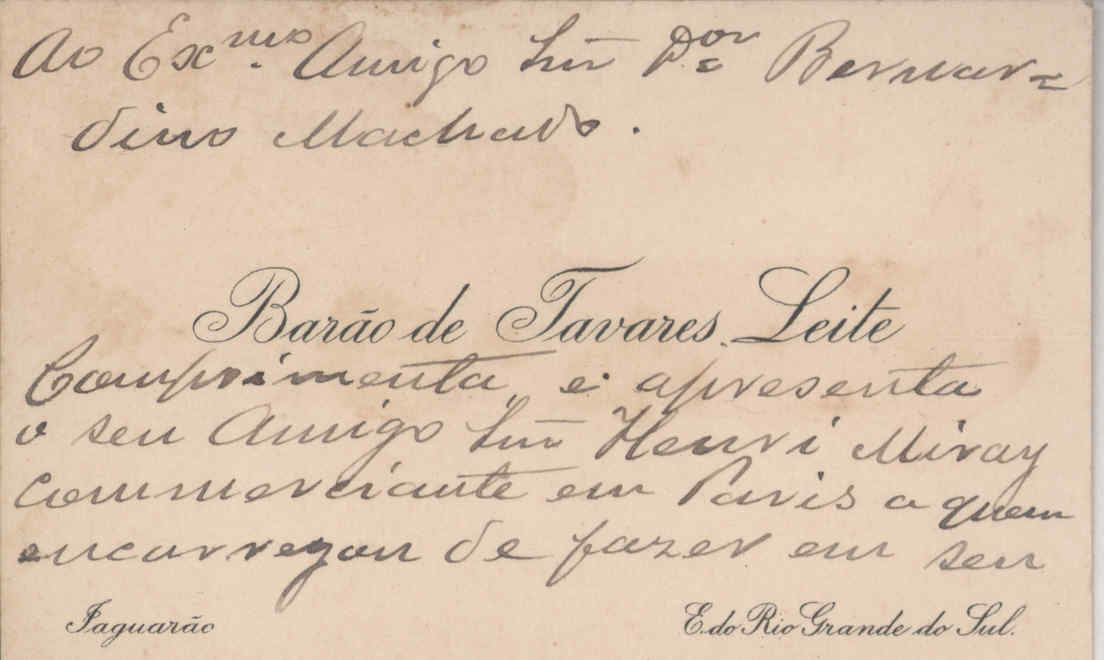 Ao Ex.mo Amigo Snr D.or Bernar=
dino Machado.
Barão de Tavares Leite
Comprimenta, e apresenta
o seu Amigo Snr Henri Miray
commerciante em Paris a quem
encarregou de fazer em seu
Jaguarão E. do Rio Grande do Sul.